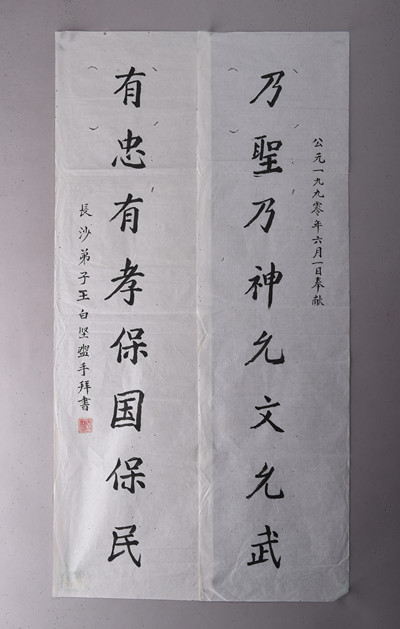 公元一九九零年六月一日奉献
乃聖乃神允文允武
有忠有孝保国保民
長沙弟子王白坚盥手拜書